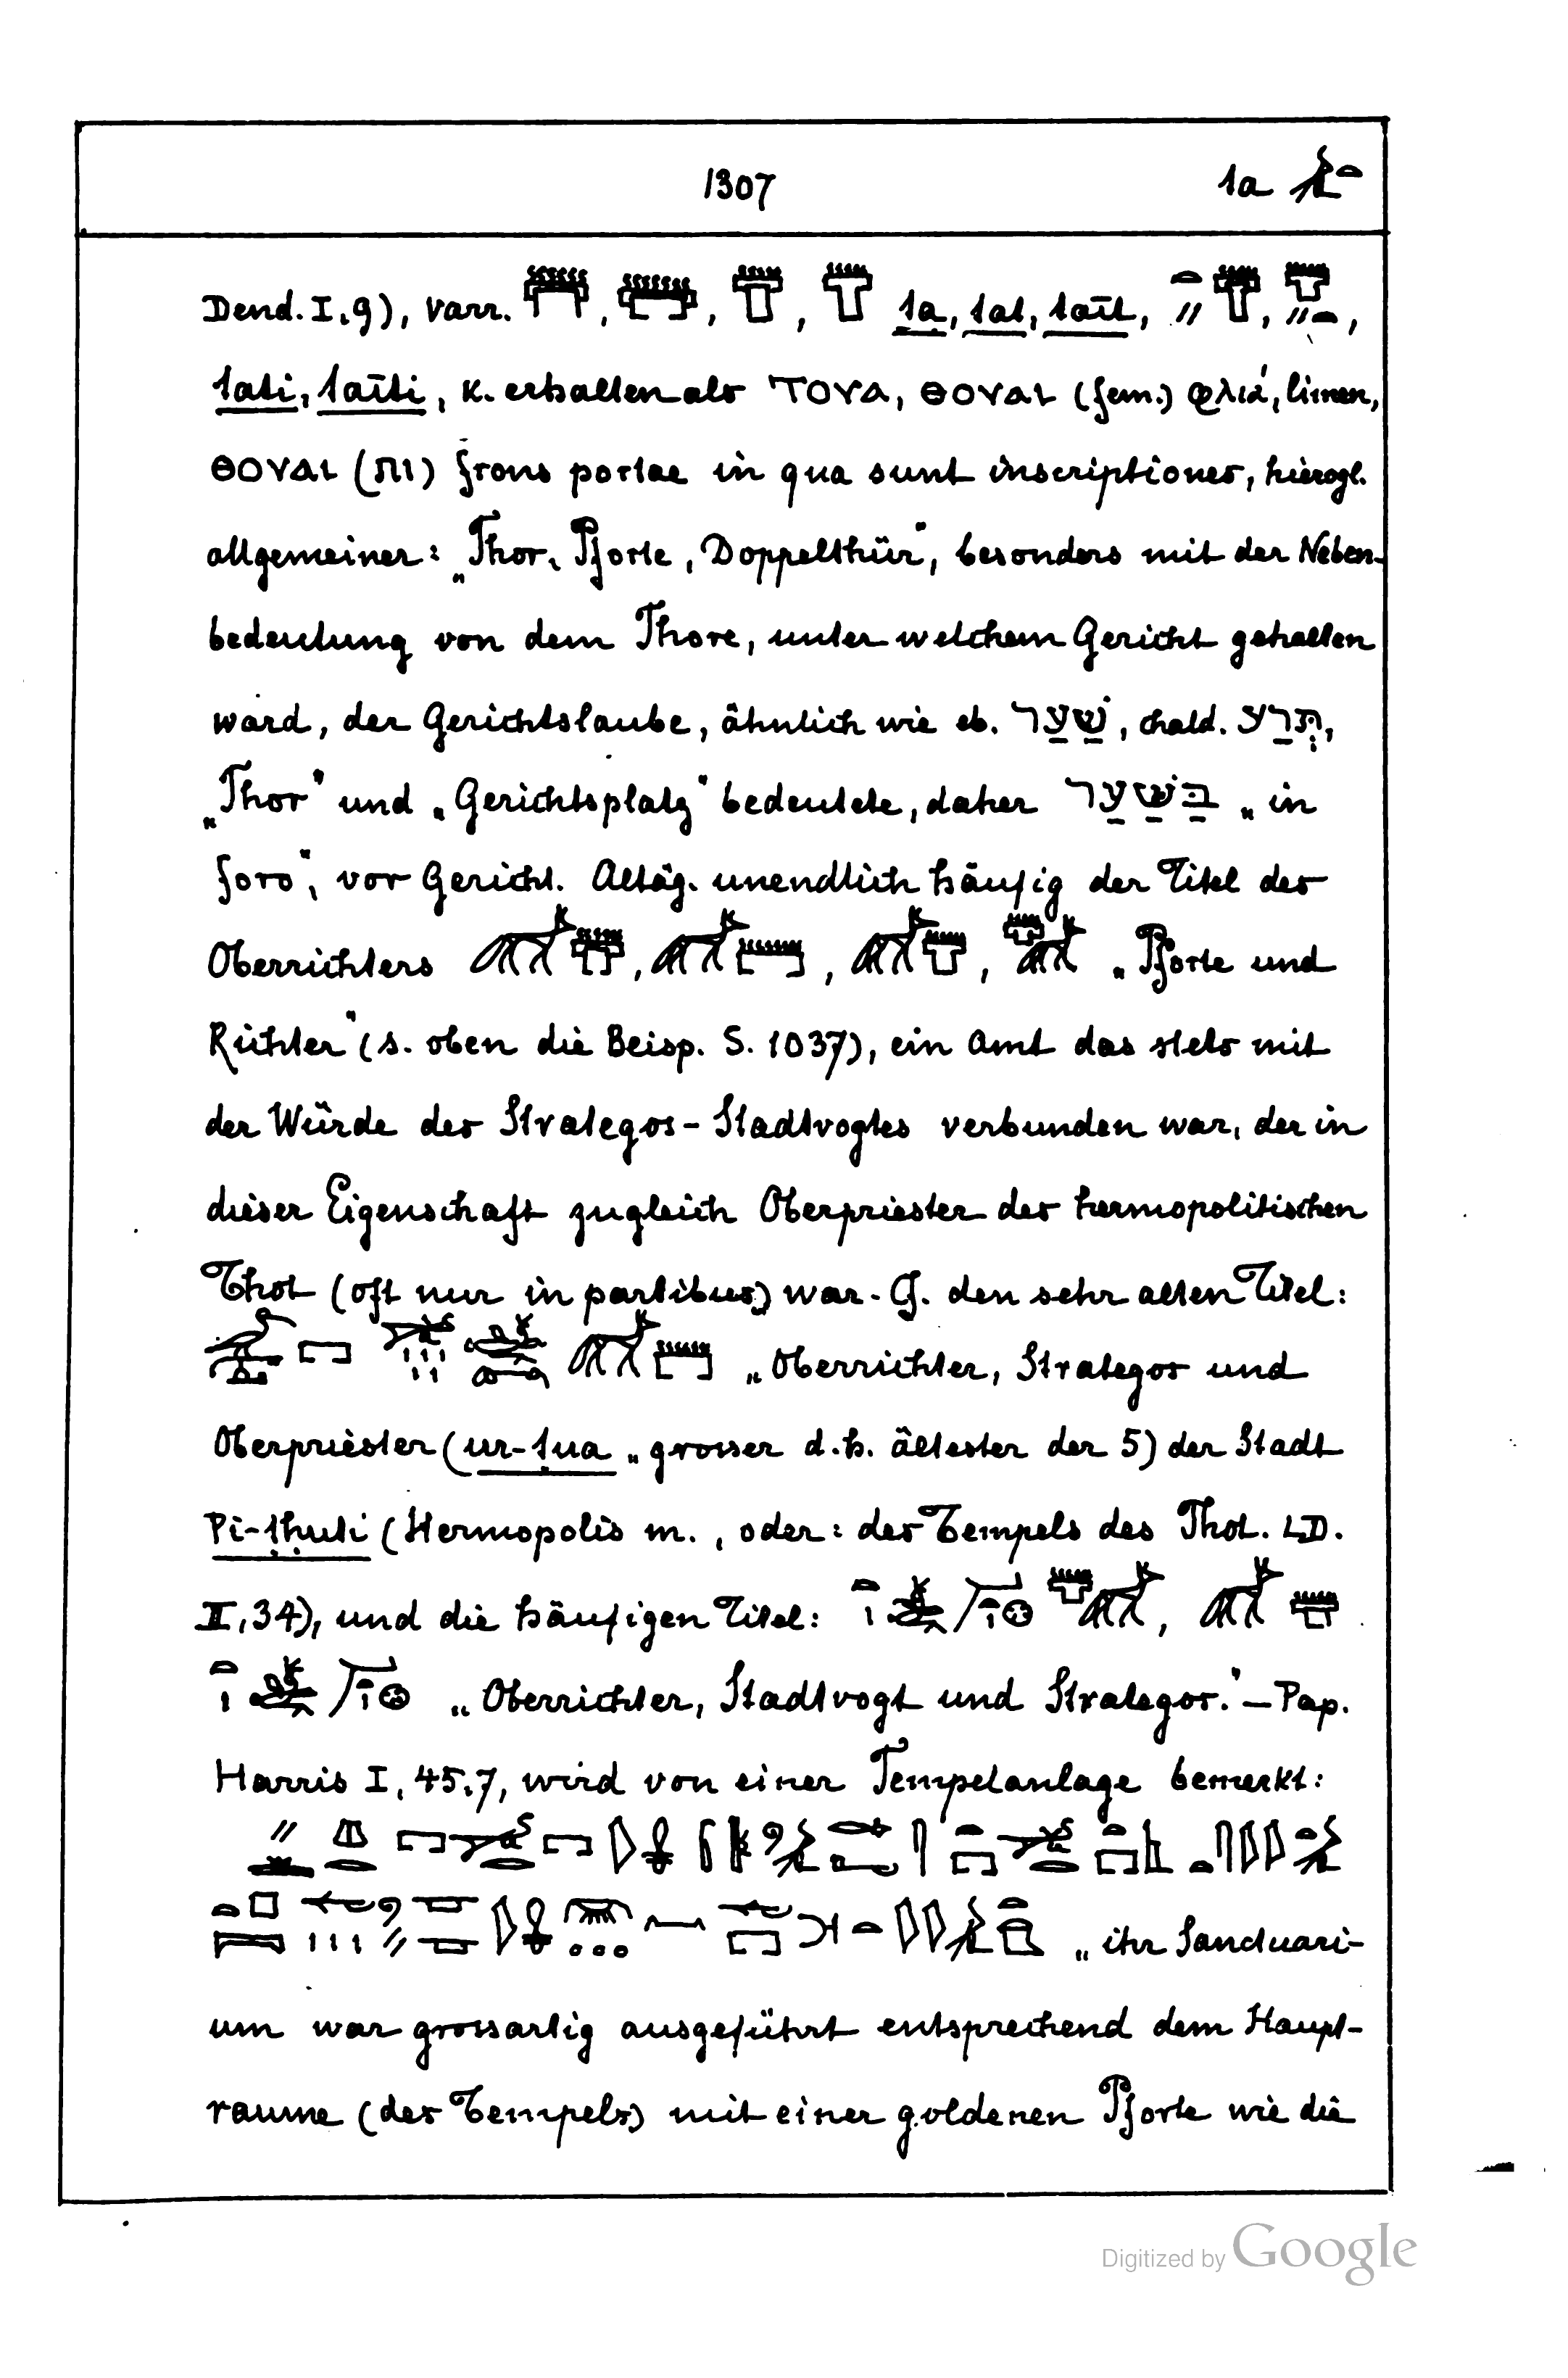 1307 ta
Dend. I, 9), Varr. , , , ta, tat, taīt, , ,
tati, taīti, K. erhalten als ⲦⲞⲨⲀ, ⲐⲞⲨⲀⲒ (fem.) φλιά, limen,
ⲐⲞⲨⲀⲒ (ⲠⲒ) frons portae in qua sunt inscriptiones, hierogl.
allgemeiner: „Thor, Pforte, Doppelthür“, besonders mit der Neben-
bedeutung von dem Thore, unter welchem Gericht gehalten
ward, der Gerichtslaube, ähnlich wie eb. שַׁעַר, chald. תְּרַע,
„Thor“ und „Gerichtsplatz“ bedeutete, daher בַּשַּׁעַר „in
foro“, vor Gericht. Altäg. unendlich häufig der Titel des
Oberrichters , , , „Pforte und
Richter“ (s. oben die Beisp. S. 1037), ein Amt das stets mit
der Würde des Strategos-Stadtvogtes verbunden war, der in
dieser Eigenschaft zugleich Oberpriester des hermopolitischen
Thot (oft nur in partibus) war. Cf. den sehr alten Titel:
„Oberrichter, Strategos und
Oberpriester (ur-ṭua „grosser d.h. ältester der 5) der Stadt
Pi-ṭḥuti (Hermopolis m., oder: des Tempels des Thot. LD.
II, 34), und die häufigen Titel: ,
„Oberrichter, Stadtvogt und Strategos.“ – Pap.
Harris I, 45,7, wird von einer Tempelanlage bemerkt:
„ihr Sanctuari-
um war grossartig ausgeführt entsprechend dem Haupt-
raume (des Tempels) mit einer goldenen Pforte wie die
Digitized by Google